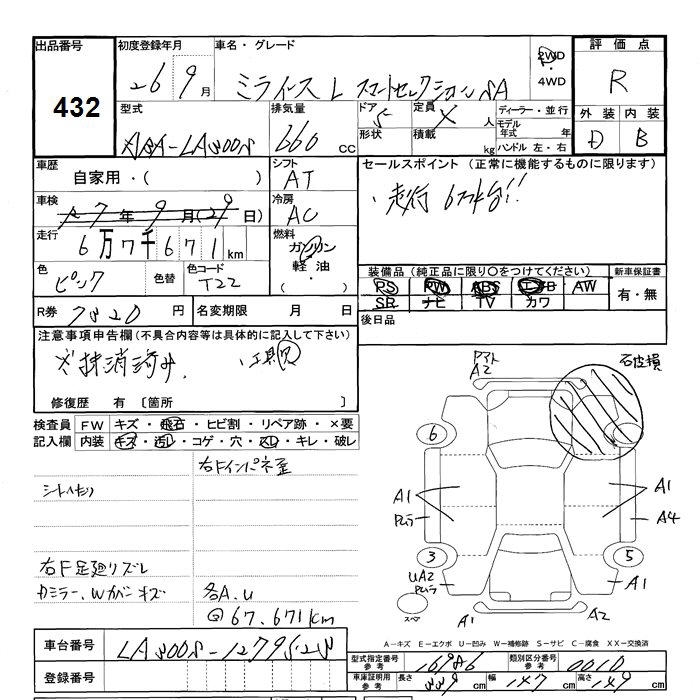 出品番号
432
初度登録年月
26 9 月
車名・グレード
ミライース L スマートセレクション SA
2WD
・
4WD
評価点
R
外装 内装
D B
型式
DBA-LA300S
排気量
660 cc
ドア
5
形状
定員
人
積載
kg
ディーラー・並行
モデル
年式 年
ハンドル 左・右
車歴
自家用・( )
シフト
AT
セールスポイント (正常に機能するものに限ります)
走行 6万K台!!
車検
年 9 月(29日)
冷房
AC
走行
6万7千671 km
燃料
ガソリン
軽油・
( )
色
ピンク
色替
色コード
T22
装備品 (純正品に限り○をつけてください)
PS PW ABS エアB AW
SR ナビ TV カワ
新車保証書
有・無
R券 7820 円
名変期限 月 日
後日品
注意事項申告欄 (不具合内容等は具体的に記入して下さい)
※抹消済み.
修復歴 有 〔箇所 〕
検査員
記入欄
FW キズ・飛石・ヒビ割・リペア跡・×要
内装 キズ・汚レ・コゲ・穴・スレ・キレ・破レ
右Fインパネ歪
右F足廻りズレ
カミラー、Wカバーキズ
各A.U
67.671km
アト
A2
破損
6
A1
A1
A4
3
5
UA2
A1
スペア
A1
A2
A-キズ E-エクボ U-凹み W-補修跡 S-サビ C-腐食 XX-交換済
車台番号
登録番号
型式指定番号
参考
16986
類別区分番号
参考
0010
車庫証明用
参考
長さ 339 cm
幅 147 cm
高さ 149 cm